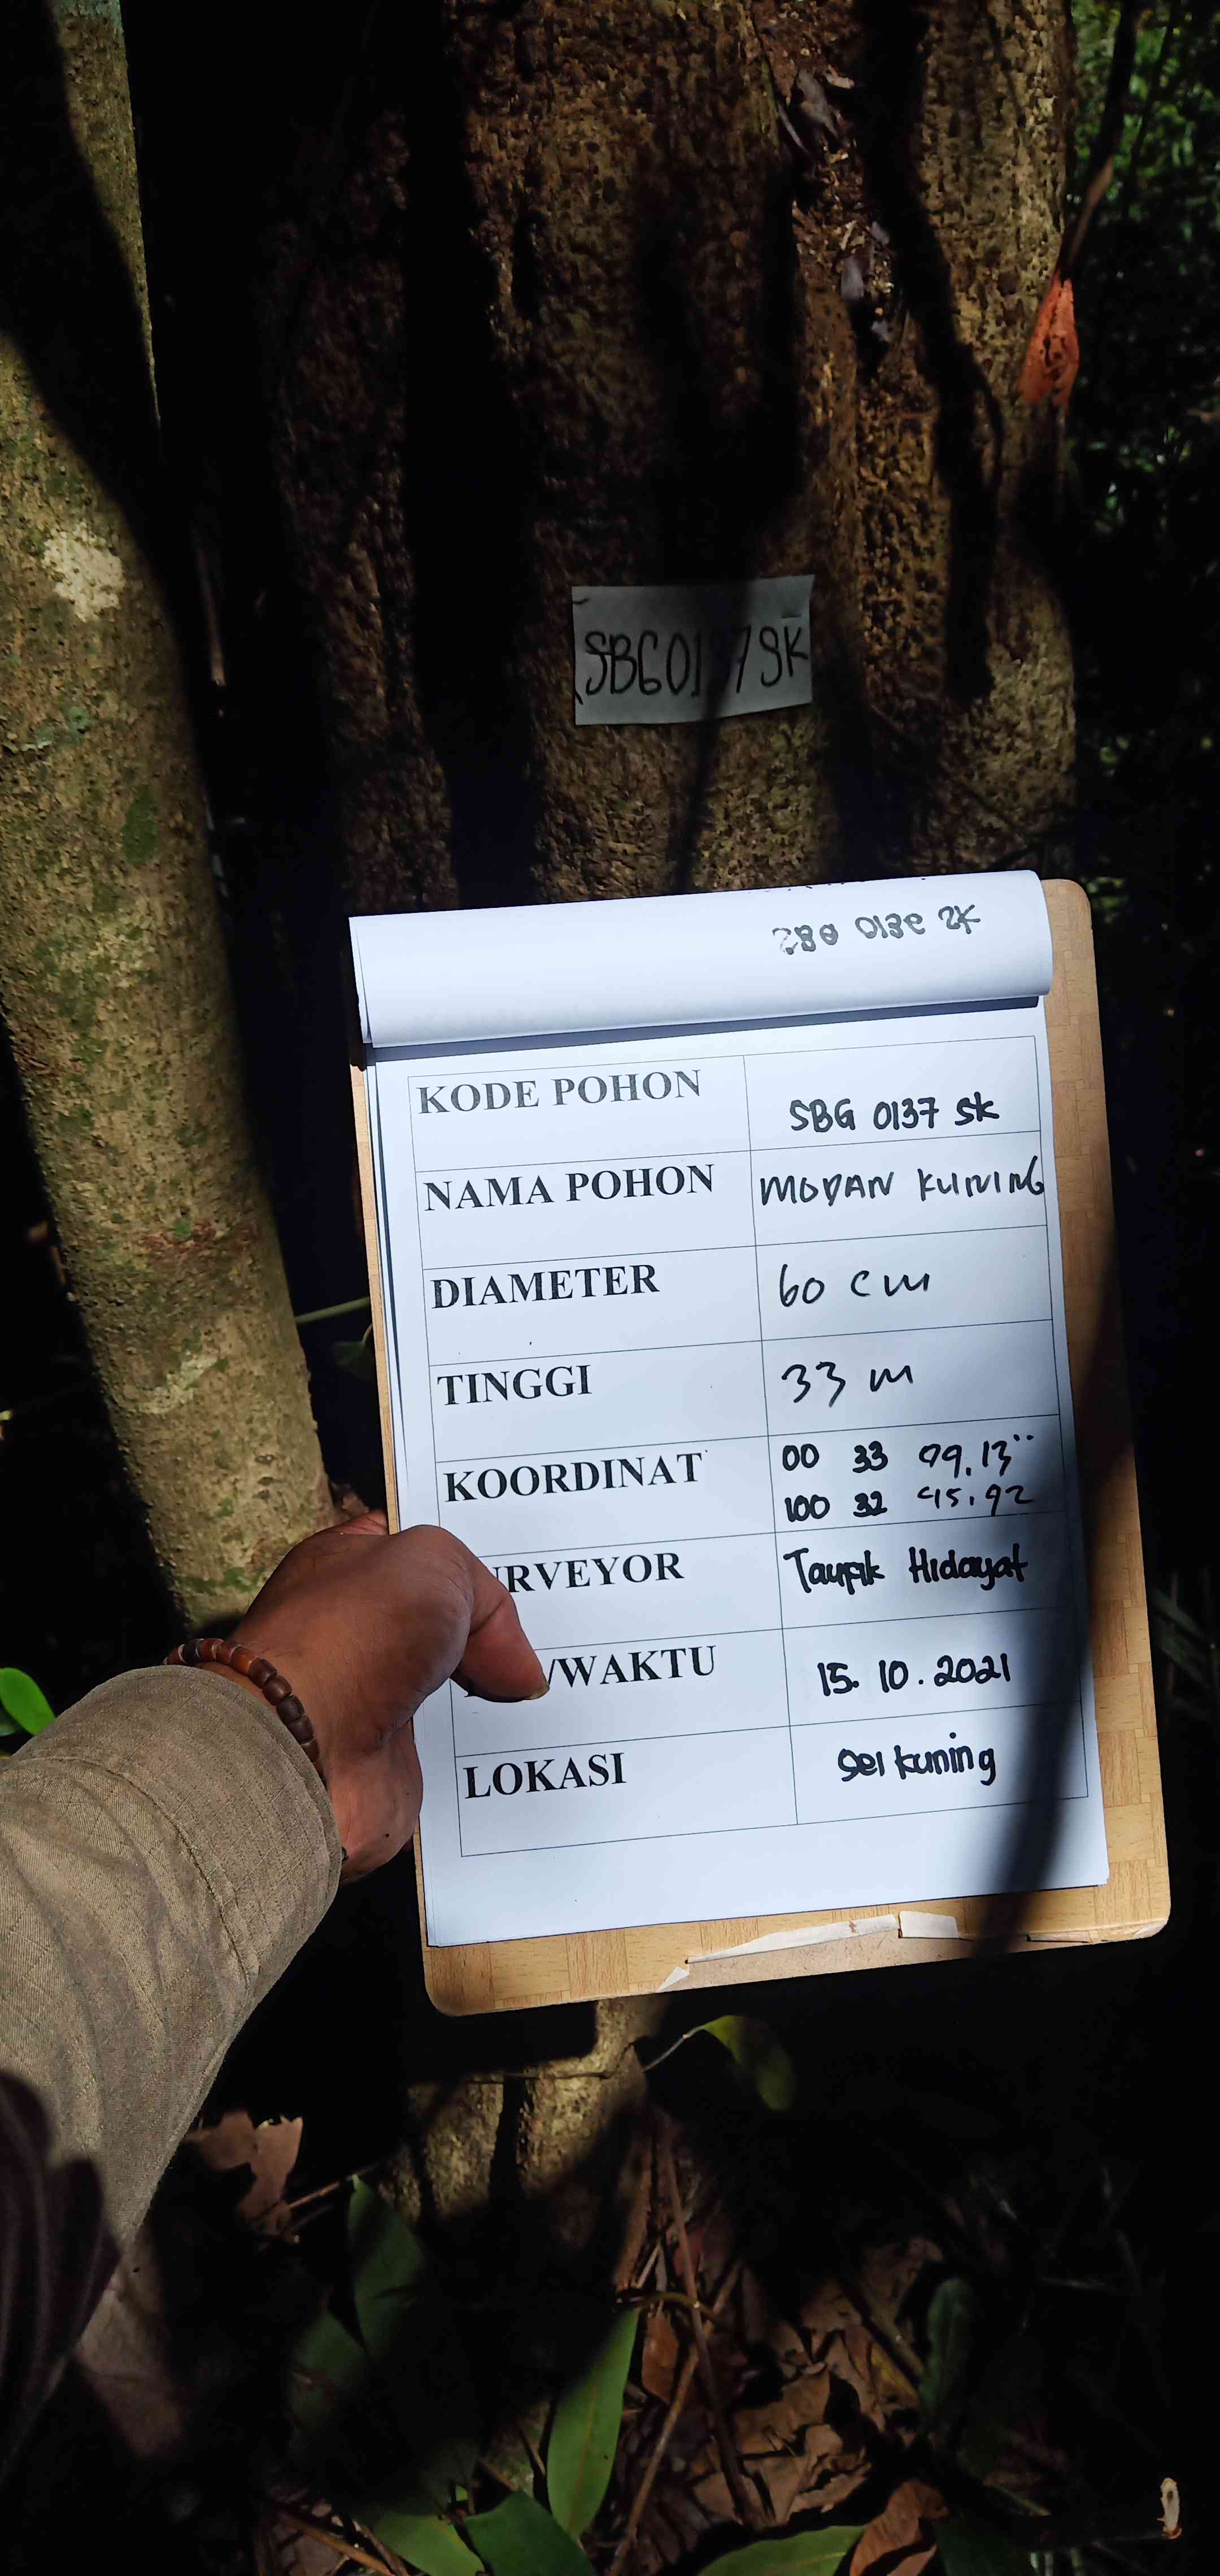 SBG0137SK
KODE POHON SBG 0137 SK
NAMA POHON MODAN KUNING
DIAMETER 60 cm
TINGGI 33 m
KOORDINAT 00 33 09.13"
100 32 45.92
RVEYOR Taufik Hidayat
/WAKTU 15.10.2021
LOKASI Sei kuning